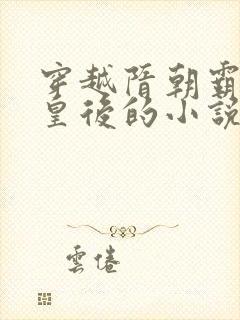 穿越隋朝霸
皇後的小說
雲倦